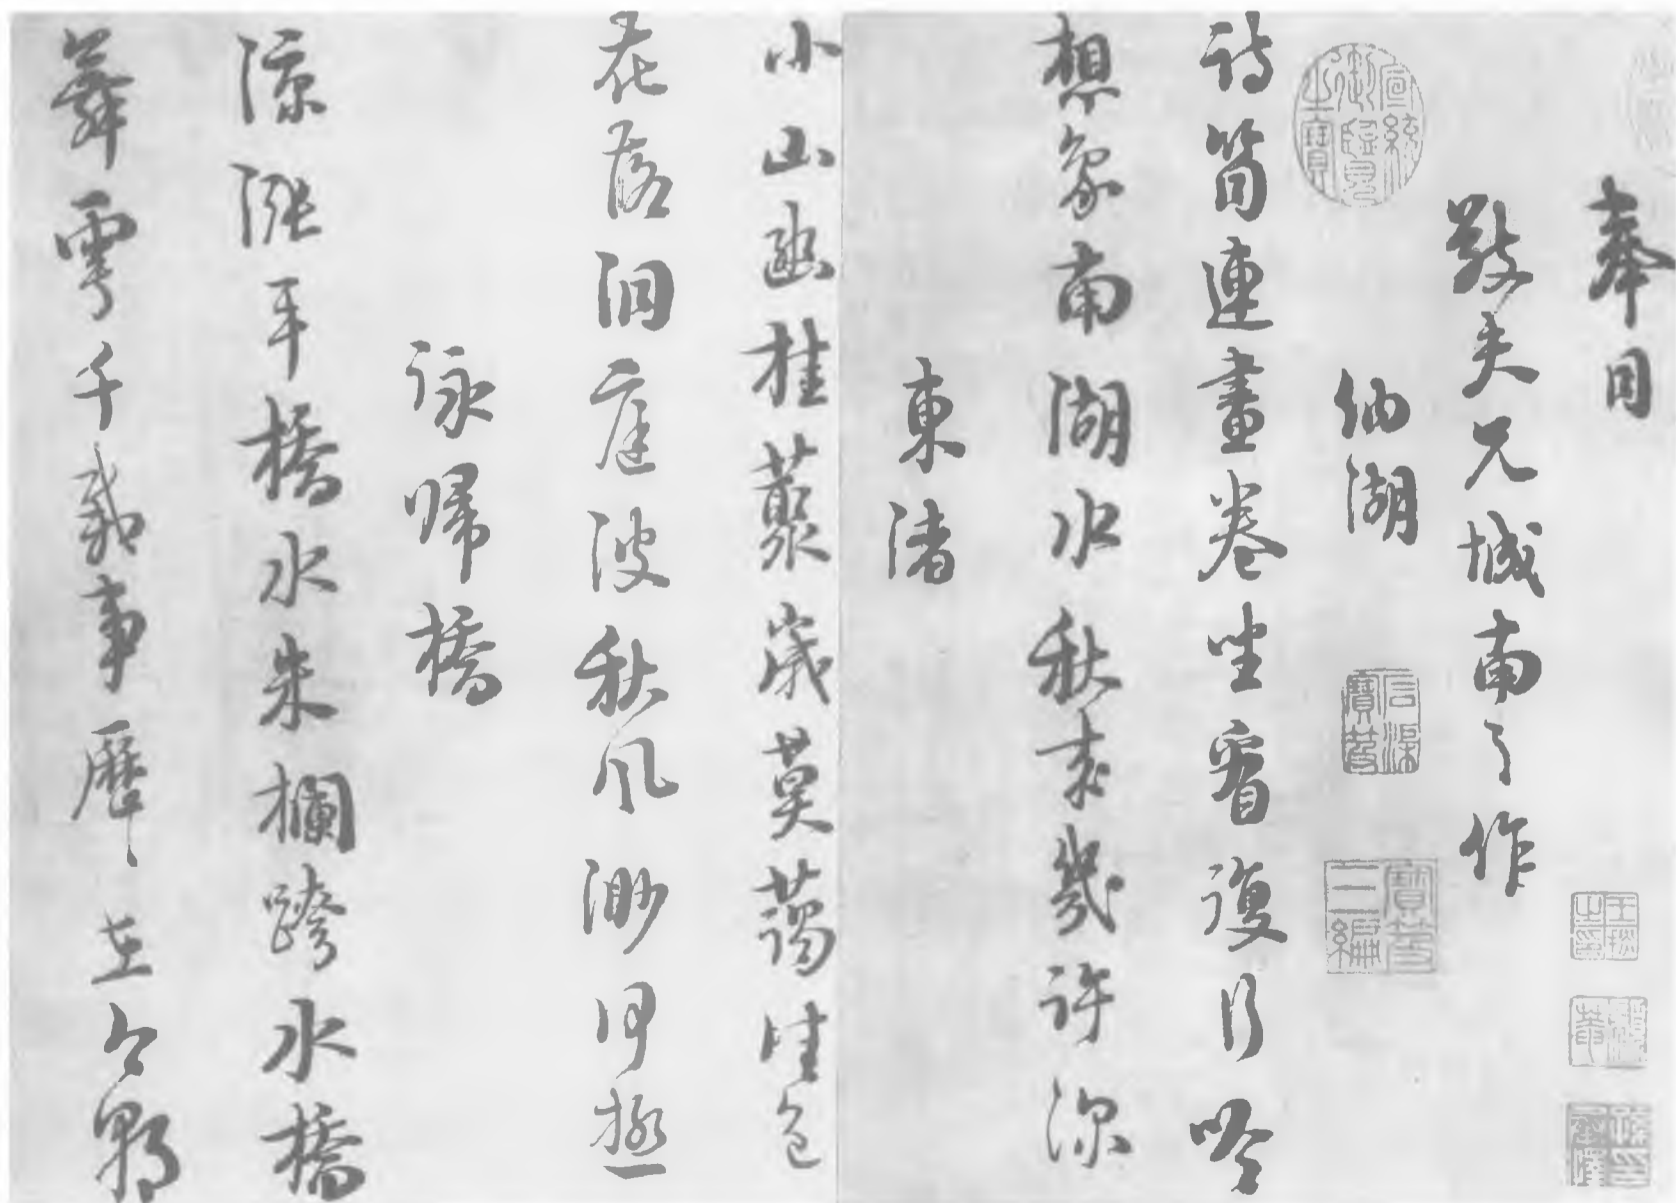 奉同
敬夫兄城南之作
宣統御覽之寶
納湖
石渠寶笈
寶笈三編
詩筒連畫卷坐看復行吟
想象南湖水秋來幾許深
東渚
小山幽桂叢歲莫藹佳色
花落洞庭波秋風渺何極
詠歸橋
涼漲平橋水朱欄跨水橋
舞雩千載事歷〻在今朝